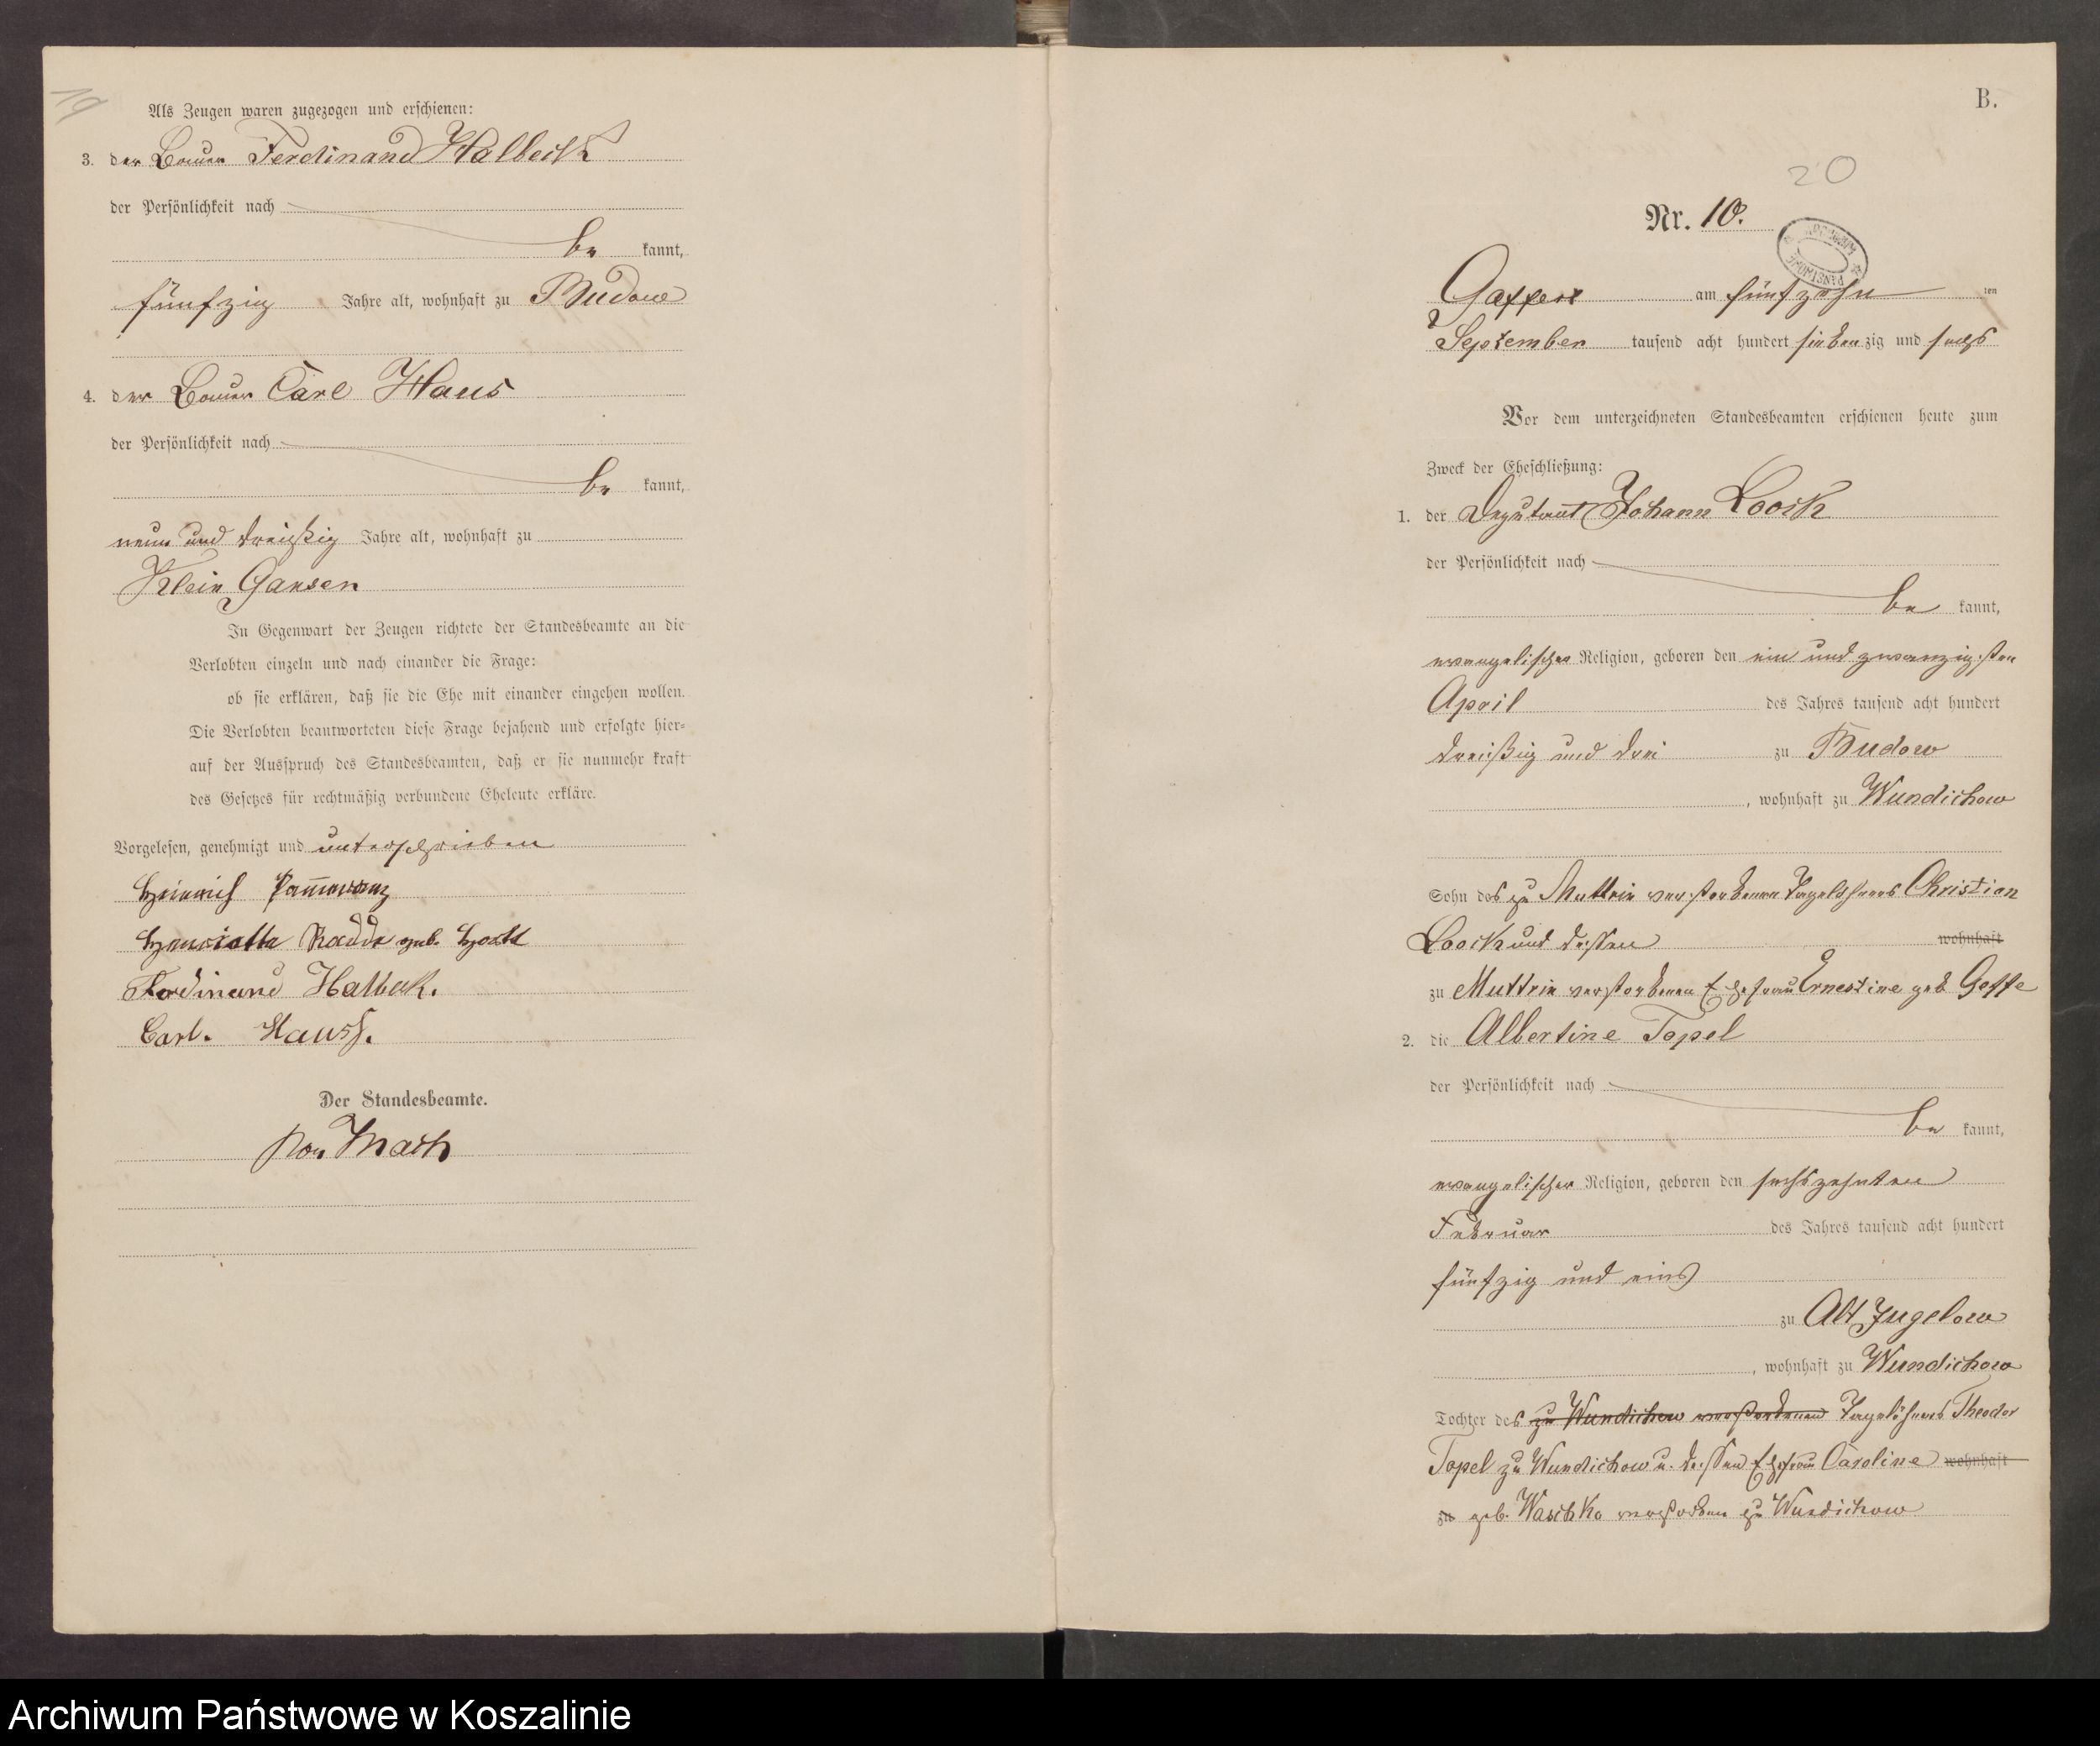 19
Als Zeugen waren zugezogen und erschienen:
3. der Bauer Ferdinand Halbeck
der Persönlichkeit nach
be kannt,
fünfzig Jahre alt, wohnhaft zu Budow
4. der Bauer Carl Haus
der Persönlichkeit nach
be kannt,
neun und dreißig Jahre alt, wohnhaft zu
Klein Gansen
In Gegenwart der Zeugen richtete der Standesbeamte an die
Verlobten einzeln und nach einander die Frage:
ob sie erklären, daß sie die Ehe mit einander eingehen wollen.
Die Verlobten beantworteten diese Frage bejahend und erfolgte hier-
auf der Ausspruch des Standesbeamten, daß er sie nunmehr kraft
des Gesetzes für rechtmäßig verbundene Eheleute erkläre.
Vorgelesen, genehmigt und unterschrieben
Heinrich
Henriette Radde geb.
Ferdinand Halbeck.
Carl. Hauss.
Der Standesbeamte.
von Mach
B.
20
Nr. 10.
am fünfzehn ten
September tausend acht hundert siebenzig und sechs
Vor dem unterzeichneten Standesbeamten erschienen heute zum
Zweck der Eheschließung:
1. der Deputant Johann Loock
der Persönlichkeit nach
be kannt,
evangelischer Religion, geboren den ein und zwanzigsten
April des Jahres tausend acht hundert
dreißig und drei zu Budow
, wohnhaft zu Wundichow
Sohn des zu Muttrin verstorbenen Tagelöhners Christian
Loock und dessen wohnhaft
zu Muttrin verstorbenen Ehefrau Ernestine geb
2. die Albertine Topel
der Persönlichkeit nach
be kannt,
evangelischer Religion, geboren den sechszehnten
Februar des Jahres tausend acht hundert
fünfzig und eins
zu Alt Jugelow
, wohnhaft zu Wundichow
Tochter des zu Wundichow verstorbenen Tagelöhners Theodor
Topel zu Wundichow u. dessen Ehefrau Caroline wohnhaft
zu geb. Waschko verstorben zu Wundichow
Archiwum Państwowe w Koszalinie